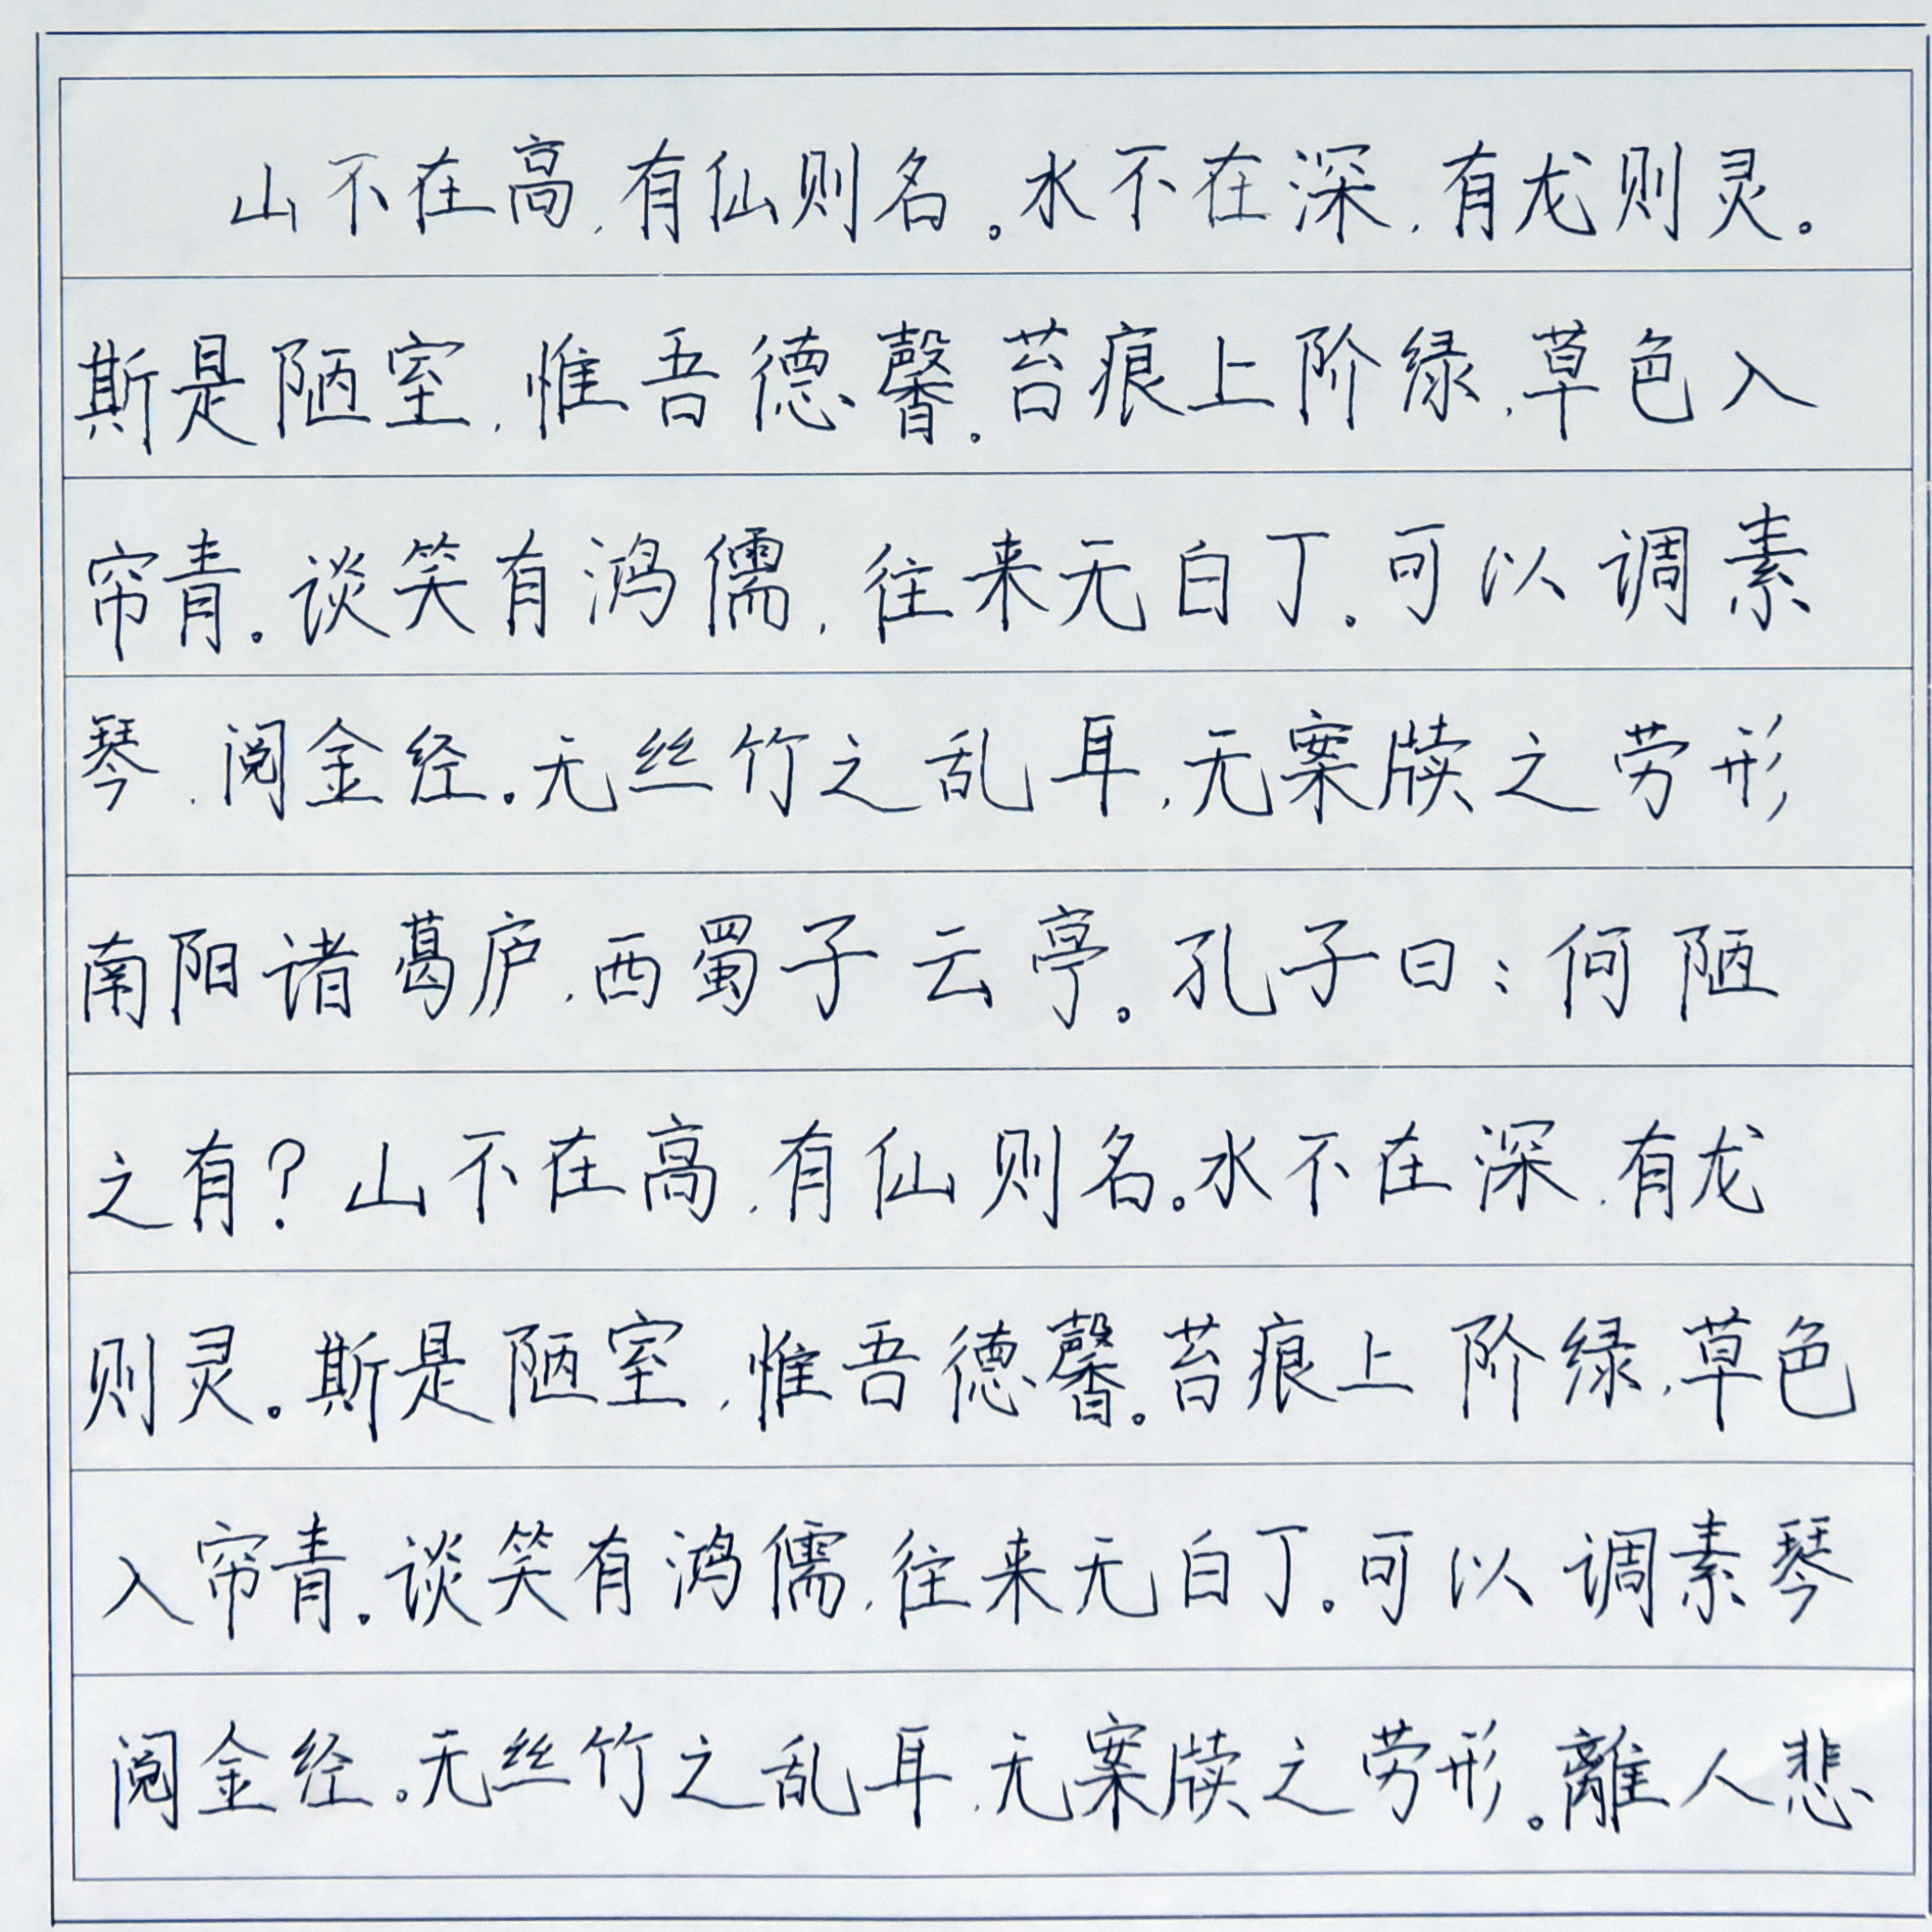 山不在高,有仙则名。水不在深,有龙则灵。
斯是陋室,惟吾德馨。苔痕上阶绿,草色入
帘青。谈笑有鸿儒,往来无白丁。可以调素
琴,阅金经。无丝竹之乱耳,无案牍之劳形
南阳诸葛庐,西蜀子云亭。孔子曰:何陋
之有?山不在高,有仙则名。水不在深,有龙
则灵。斯是陋室,惟吾德馨。苔痕上阶绿,草色
入帘青。谈笑有鸿儒,往来无白丁。可以调素琴
阅金经。无丝竹之乱耳,无案牍之劳形。離人悲